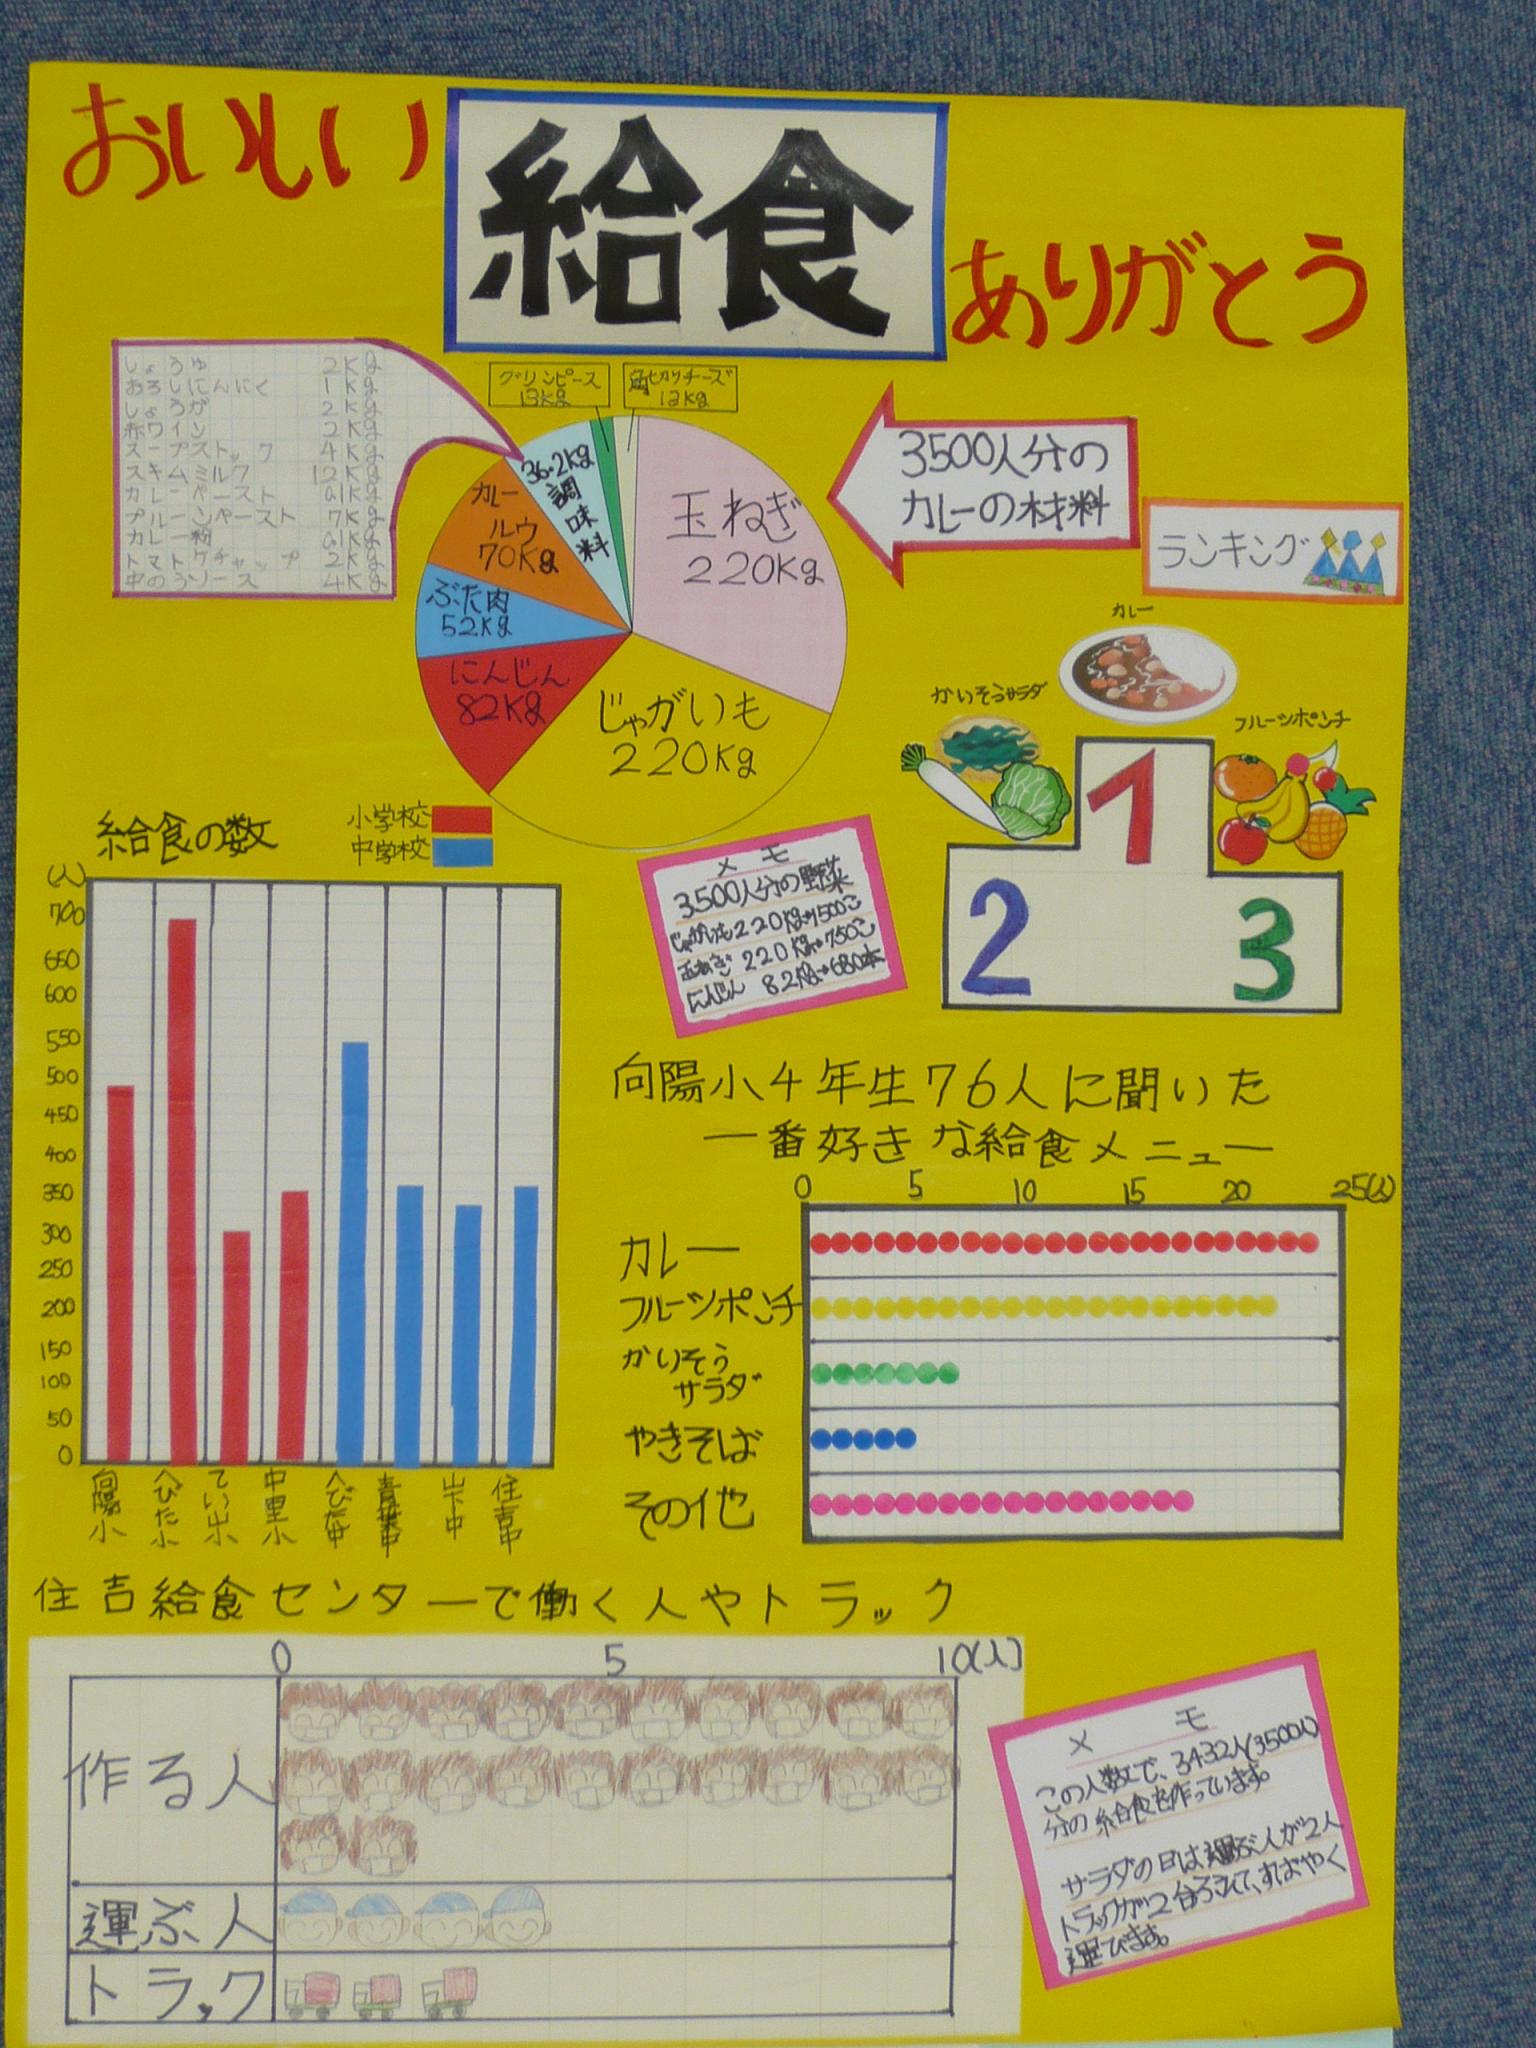 おいしい
給食
ありがとう
しょうゆ 2Kg
おろしにんにく 1Kg
しょうが 2Kg
赤ワイン 2Kg
スープストック 4Kg
スキムミルク 12Kg
カレーペースト
プルーンペースト 7Kg
カレー粉
トマトケチャップ 2Kg
中のうソース 4Kg
グリンピース
13Kg
角切りチーズ
12Kg
3500人分の
カレーの材料
玉ねぎ
220Kg
じゃがいも
220Kg
にんじん
82Kg
ぶた肉
52Kg
カレー
ルウ
70Kg
36.2Kg
調味料
ランキング
カレー
かいそうサラダ
フルーツポンチ
1
2
3
メモ
3500人分の野菜
じゃがいも220Kg→1500こ
玉ねぎ 220Kg→750こ
にんじん 82Kg→680本
給食の数
小学校
中学校
(人)
700
650
600
550
500
450
400
350
300
250
200
150
100
50
0
向陽小
へびた小
てい山小
中里小
へびた中
青葉中
山下中
住吉中
向陽小4年生76人に聞いた
一番好きな給食メニュー
0 5 10 15 20 25(人)
カレー
フルーツポンチ
かいそう
サラダ
やきそば
その他
住吉給食センターで働く人やトラック
0 5 10(人)
作る人
運ぶ人
トラック
メモ
この人数で、3432人(3500人)
分の給食を作っています。
サラダの日は運ぶ人が2人
トラックが2台ふえて、すばやく
運びます。